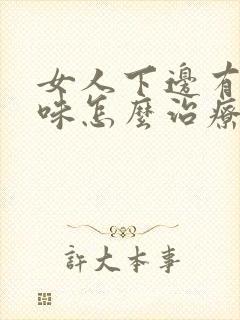 女人下邊有
味怎麼治療
許大本事